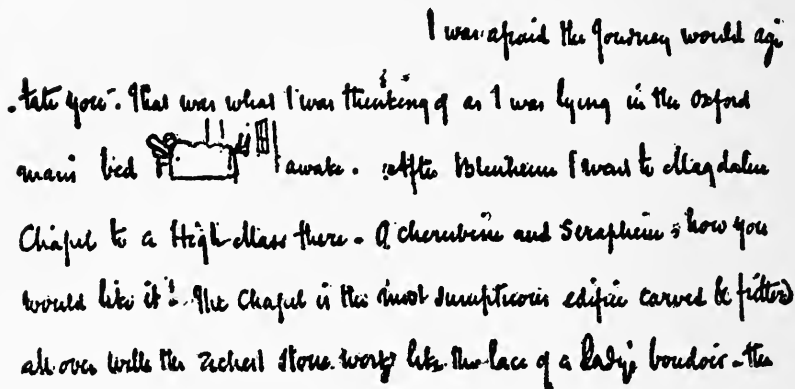 I was afraid the journey would agi
tate you. That was what I was thinking of as I was lying in the Oxford
mans bed awake. After Blenheim I went to Magdalen
Chapel to a High Mass there. O cherubim and Seraphim; how you
would like it! The Chapel is the most sumptuous edifice carved & fretted
all over with the richest stone. work like the lace of a Lady's boudoir - the